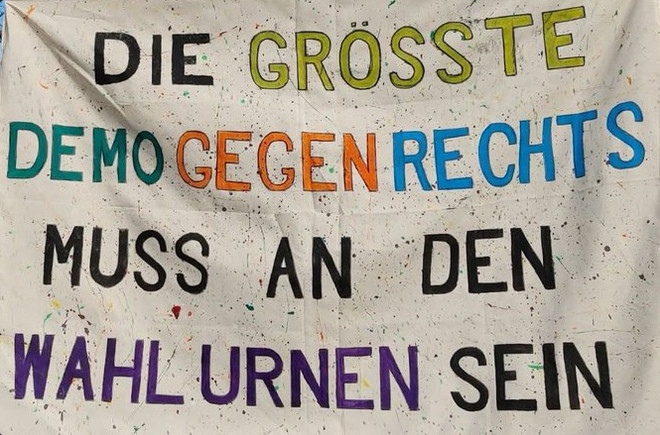 DIE GRÖSSTE
DEMO GEGEN RECHTS
MUSS AN DEN
WAHLURNEN SEIN